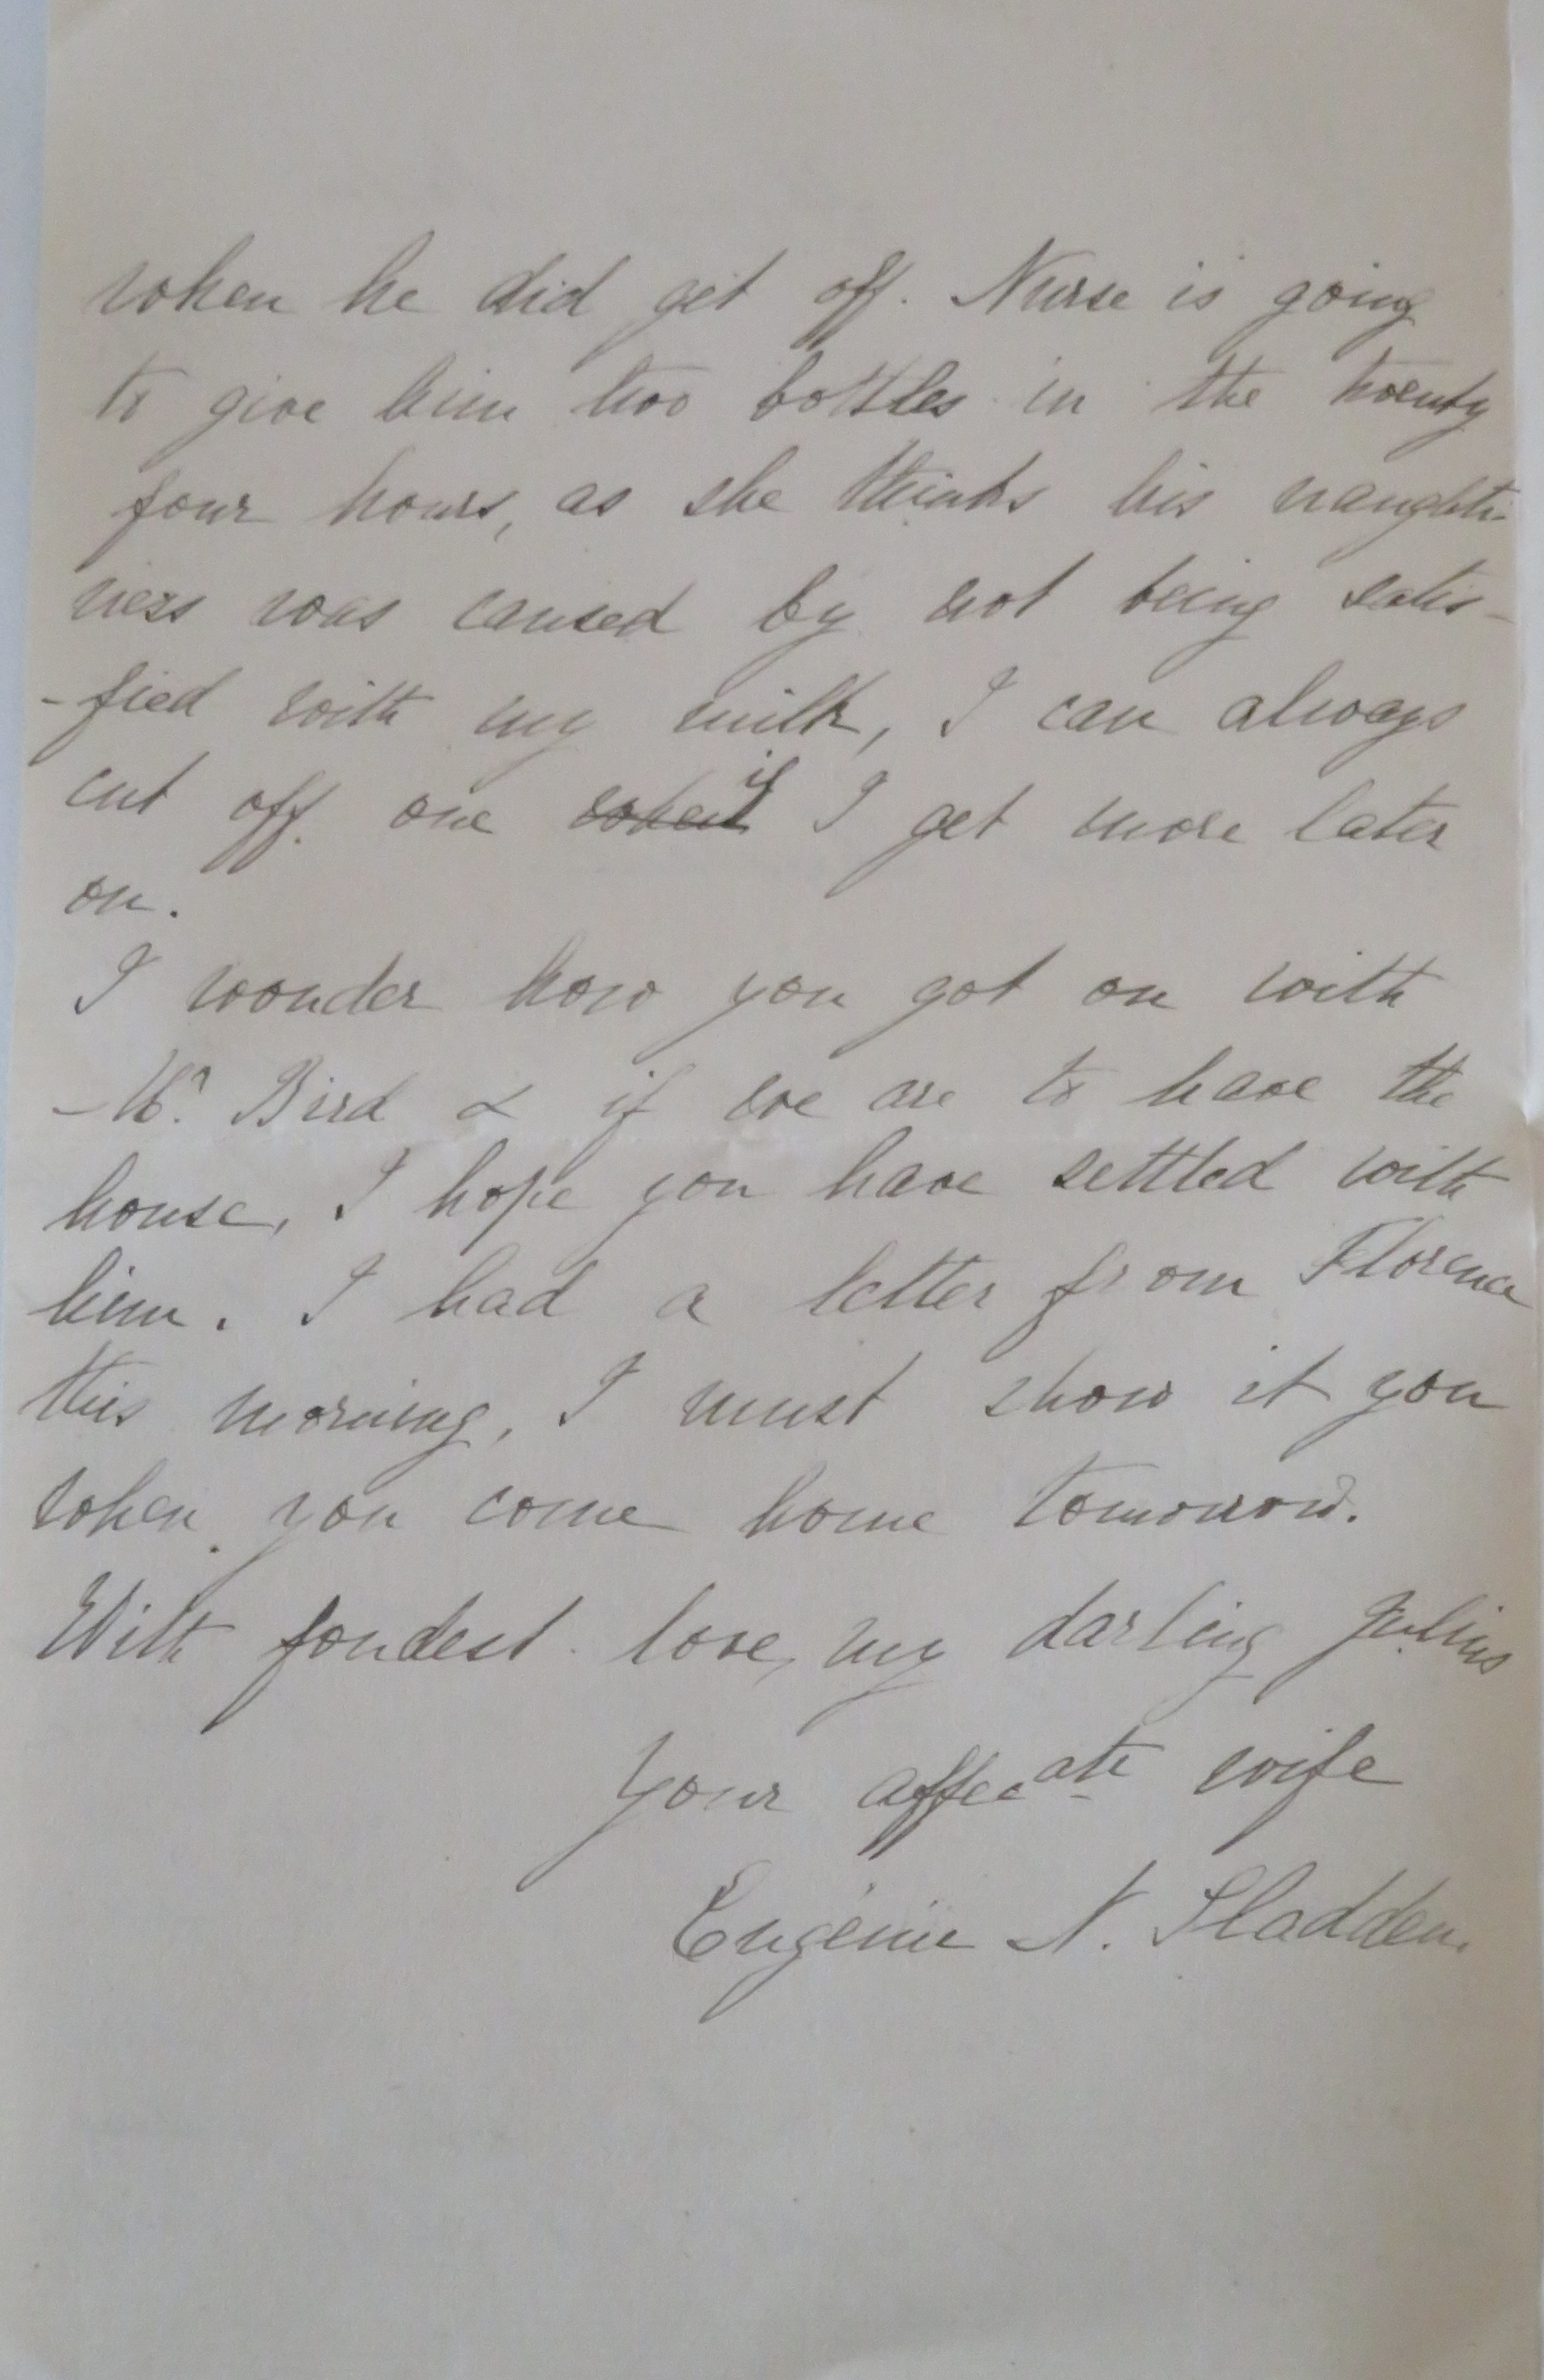 when he did get off. Nurse is going
to give him two bottles in the twenty
four hours, as she thinks his naughti-
ness was caused by not being satis-
-fied with my milk, I can always
cut off one when if I get more later
on.
I wonder how you got on with
Mr. Bird & if we are to have the
house, I hope you have settled with
him. I had a letter from Florence
this morning, I must show it you
when you come home tomorrow.
With fondest love, my darling Julius
Your affecate wife
Eugénie N. Sladden.